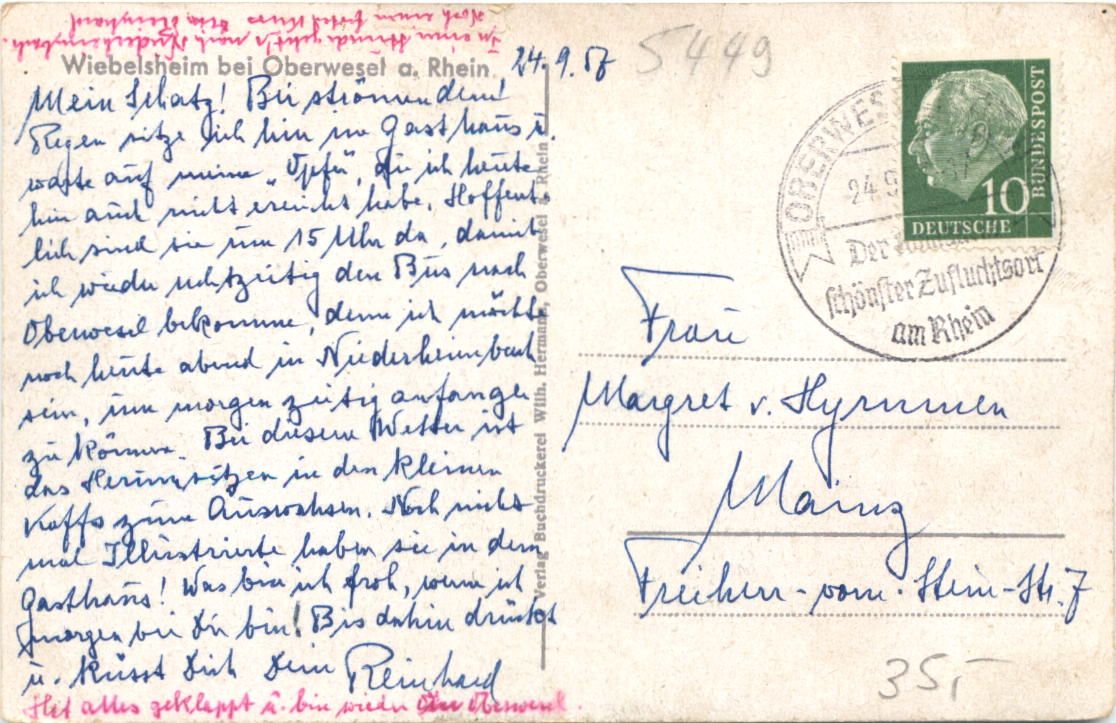 In einer Stunde geht's nach Niederheimbach.
Noch einen Kuss Dein Reinhard
Wiebelsheim bei Oberwesel a. Rhein
24.9.57
5449
Mein Schatz! Bei strömendem
Regen sitze ich hier im Gasthaus u.
warte auf meine „Opfer", die ich heute
hier auch nicht erreicht habe. Hoffent-
lich sind sie um 15 Uhr da, damit
ich wieder rechtzeitig den Bus nach
Oberwesel bekomme, denn ich möchte
noch heute abend in Niederheimbach
sein, um morgen zeitig anfangen
zu können. Bei diesem Wetter ist
das Herumsitzen in den kleinen
Kaffs zum Auswachsen. Noch nicht
mal Illustrierte haben sie in dem
Gasthaus! Was bin ich froh, wenn ich
morgen bei Dir bin! Bis dahin drückt
u. küsst Dich Dein Reinhard
Hat alles geklappt u. bin wieder in Oberwesel.
Verlag Buchdruckerei Wilh. Hermann, Oberwesel a. Rhein
OBERWES
24.9
Der
schönster Zufluchtsort
am Rhein
10
DEUTSCHE
BUNDESPOST
Frau
Margret v. Hymmen
Mainz
Freiherr-vom-Stein-Str. 7
35,-